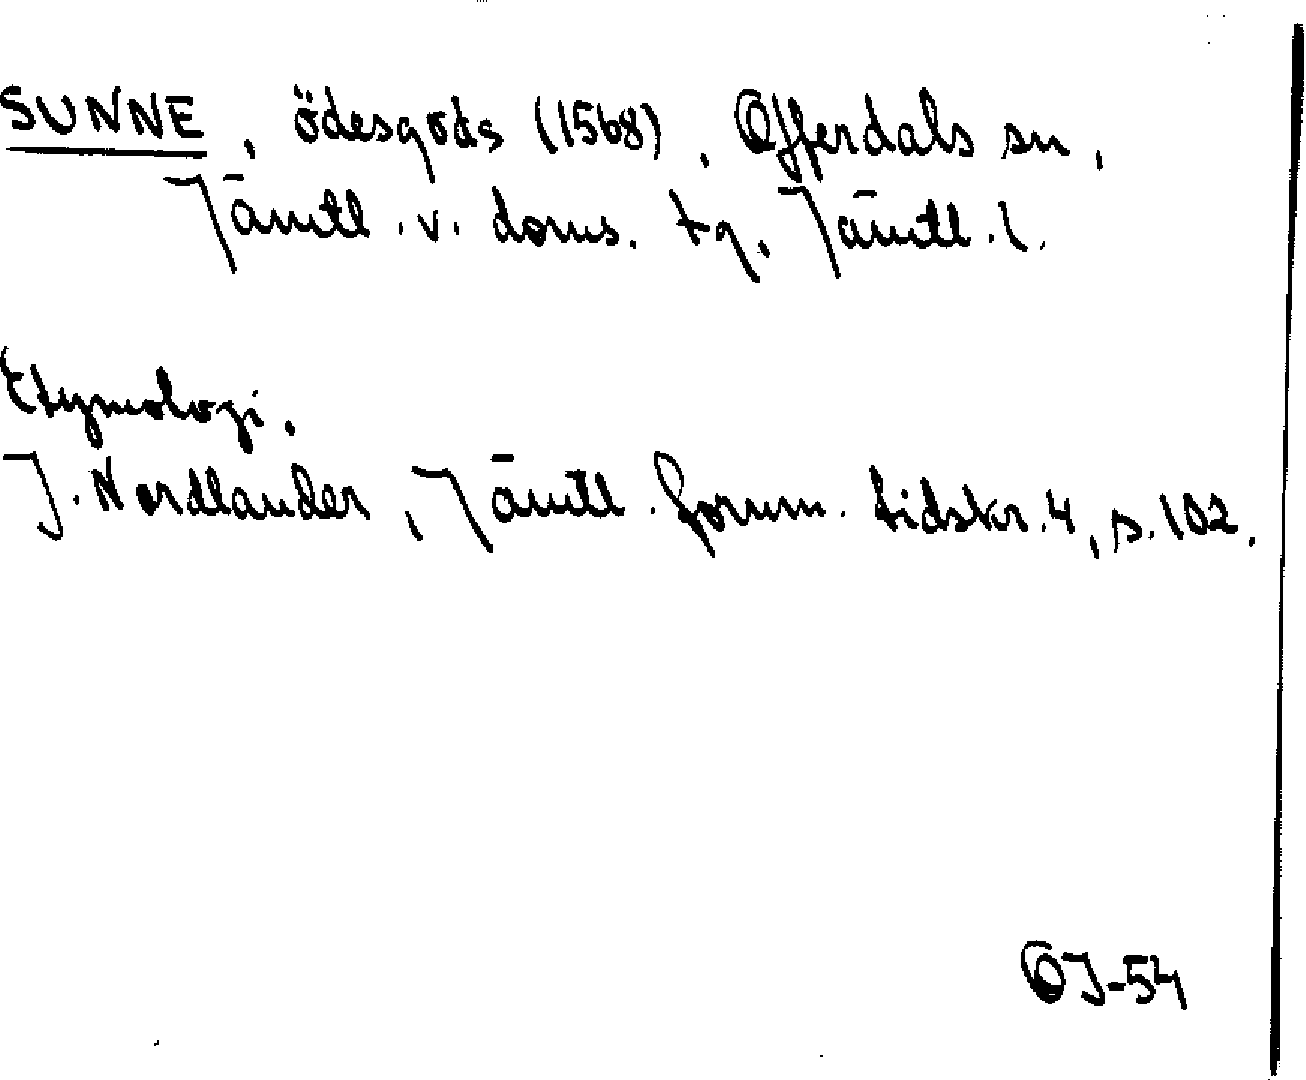 SUNNE, ödesgods (1568), Offerdals sn,
Jämtl. v. doms. tg, Jämtl. l.
Etymologi.
J. Nordlander, Jämtl. fornm. tidskr. 4, s. 102.
OJ-54